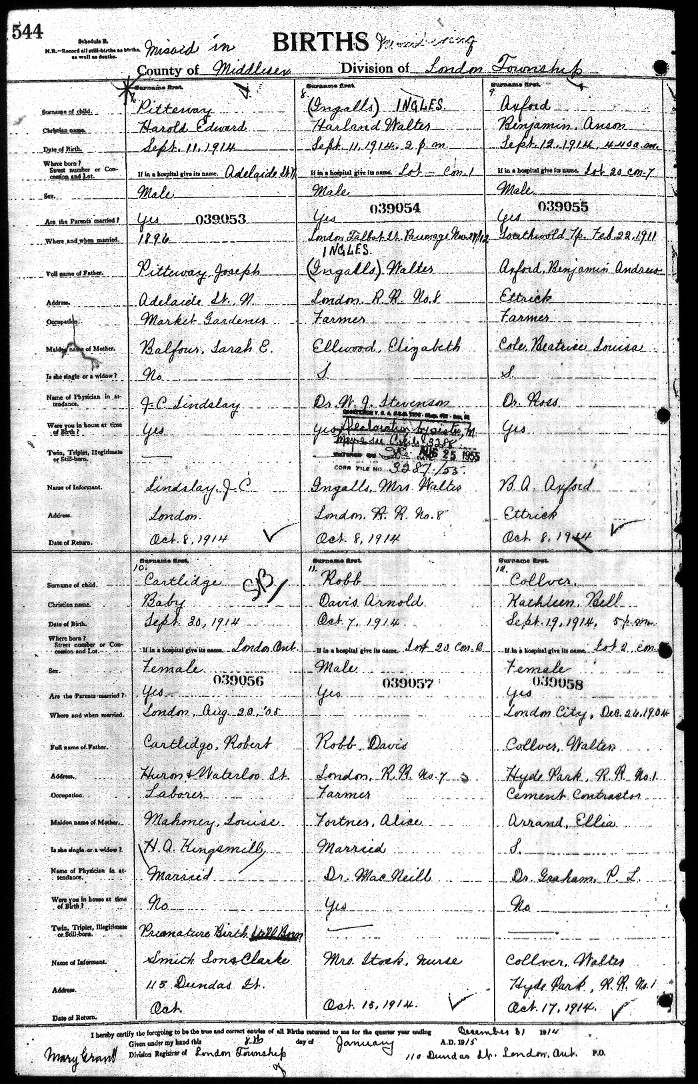 544
Schedule B.
N.B.—Record all still-births as births, as well as deaths.
Missed in
BIRTHS
County of Middlesex Division of London Township
Surname first. Surname first. Surname first.
8 9
Surname of child. Pitteway (Ingalls) INGLES Axford
Christian name. Harold Edward Harland Walter Benjamin, Anson
Date of Birth. Sept. 11, 1914 Sept. 11, 1914. 2 p.m. Sept 12, 1914, 4.40 a.m.
Where born? Street number or Concession and Lot. If in a hospital give its name. Adelaide St N If in a hospital give its name. Lot — Con. 1 If in a hospital give its name. Lot 20 con. 7
Sex. Male Male Male
039053 039054 039055
Are the Parents married? Yes Yes Yes
Where and when married. 1896 London Talbot St. Parsonage Southwold Tp. Feb 22, 1911
INGLES.
Full name of Father. Pitteway Joseph (Ingalls), Walter Axford, Benjamin Andrew
Address. Adelaide St. N. London R.R. No. 8 Ettrick
Occupation. Market Gardener Farmer Farmer
Maiden name of Mother. Balfour, Sarah E. Ellwood, Elizabeth Cole, Beatrice Louisa
Is she single or a widow? No S S.
Name of Physician in attendance. J-C Lindslay Dr. W. J. Stevenson Dr. Ross
Were you in house at time of Birth? Yes Yes Yes.
Declaration
AUG 25 1955
CORR FILE NO. 3287/55
Twin, Triplet, Illegitimate or Still-born. —
Name of Informant. Lindslay, J-C Ingalls, Mrs. Walter B. A. Axford
Address. London London, R.R. No. 8 Ettrick
Date of Return. Oct. 8, 1914 Oct. 8, 1914 Oct. 8, 1914
Surname first. Surname first. Surname first.
10. 11. 12.
Surname of child. Cartlidge SB/ Robb Collver,
Christian name. Baby Davis Arnold Kathleen, Bell
Date of Birth. Sept. 30, 1914 Oct 7, 1914 Sept. 19, 1914, 5 p.m.
Where born? Street number or Concession and Lot. If in a hospital give its name. London, Ont. If in a hospital give its name. Lot 20 Con. If in a hospital give its name. Lot 2, con.
Sex. Female Male Female
039056 039057 039058
Are the Parents married? Yes Yes Yes
Where and when married. London, Aug 20, '05 London City, Dec. 26, 1904
Full name of Father. Cartlidge, Robert Robb, Davis Collver, Walter
Address. Huron & Waterloo St. London, R.R. No. 7 Hyde Park, R.R. No. 1
Occupation. Laborer Farmer Cement Contractor
Maiden name of Mother. Mahoney, Louise Fortner, Alice Arrand, Ella
Is she single or a widow? H. A. Kingsmill Married S.
Name of Physician in attendance. Married Dr. Mac Neill Dr. Graham, P. L.
Were you in house at time of Birth? No Yes No
Twin, Triplet, Illegitimate or Still-born. Premature Birth Still Born — —
Name of Informant. Smith Son & Clarke Mrs. Stock, Nurse Collver, Walter
Address. 115 Dundas St. Hyde Park, R.R. No. 1
Date of Return. Oct. Oct. 15, 1914. Oct. 17, 1914.
I hereby certify the foregoing to be the true and correct entries of all Births returned to me for the quarter year ending December 31 1914
Given under my hand this 8th day of January A.D. 1915
Mary Grant Division Registrar of London Township 110 Dundas St. London, Ont. P.O.